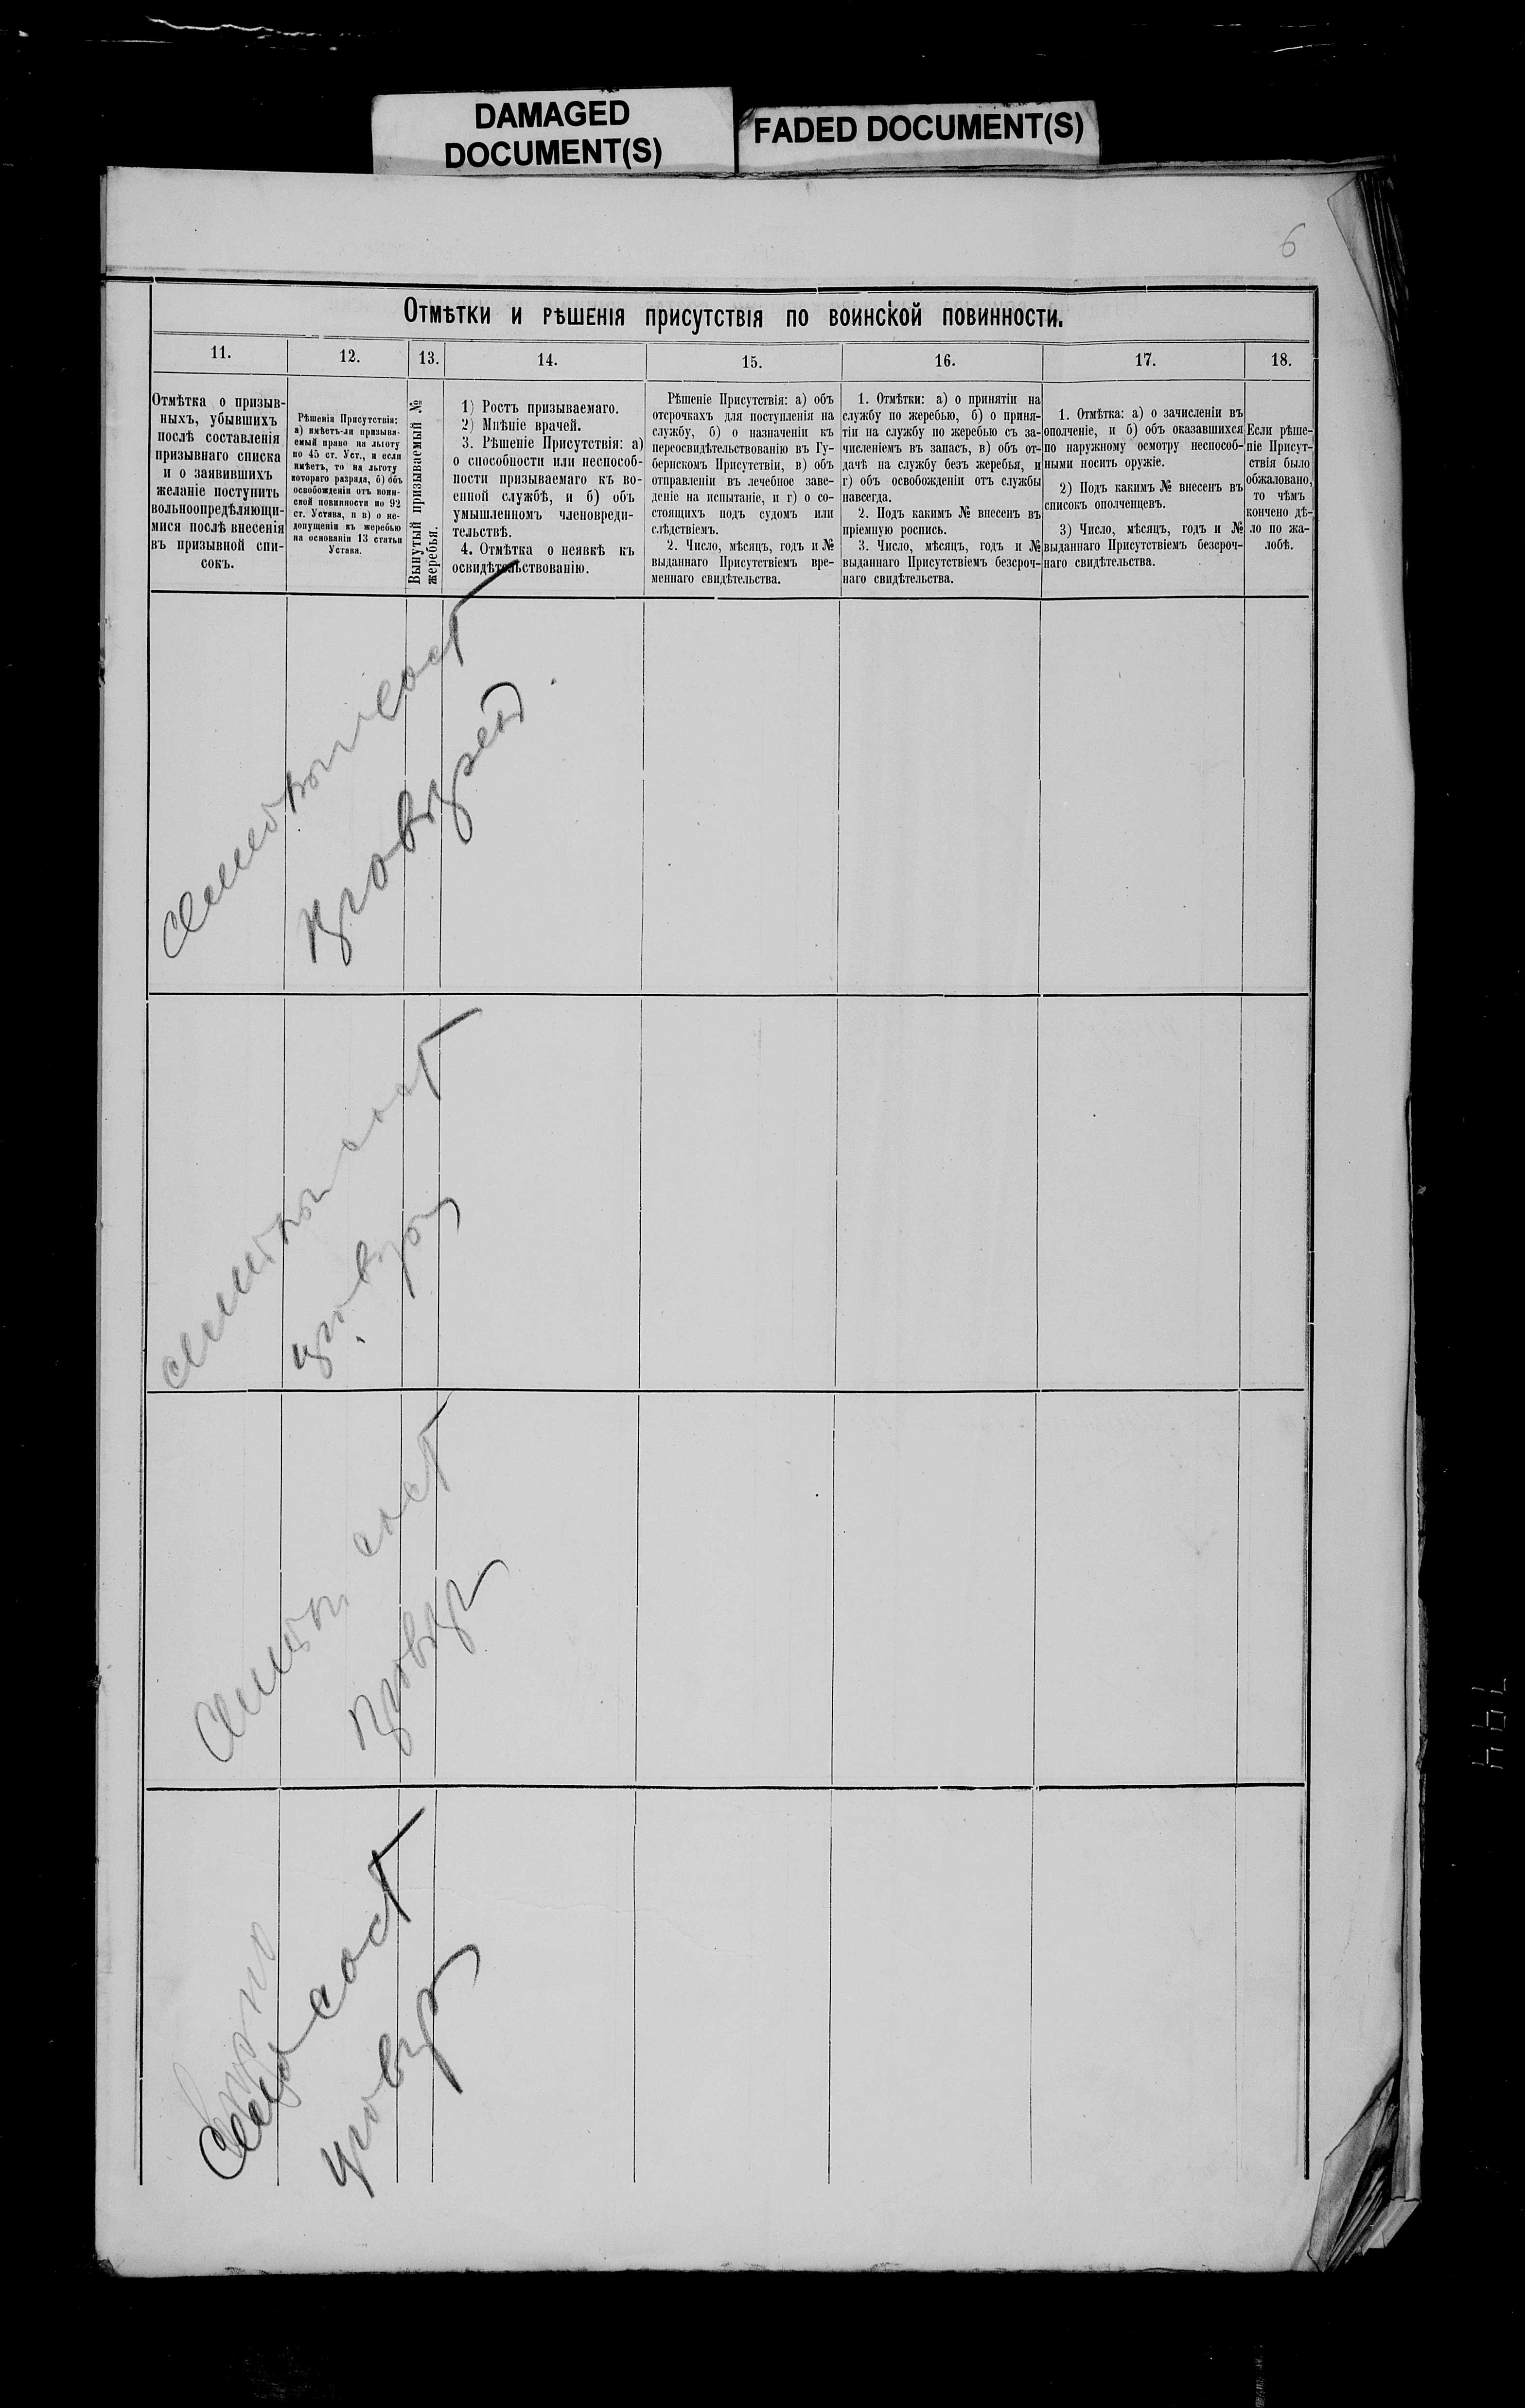 DAMAGED
DOCUMENT(S)
FADED DOCUMENT(S)
6
Отмѣтки и рѣшенія присутствія по воинской повинности.
11.
12.
13.
14.
15.
16.
17.
18.
Отмѣтка о призыв-
ныхъ, убывшихъ
послѣ составленія
призывнаго списка
и о заявившихъ
желаніе поступить
вольноопредѣляющи-
мися послѣ внесенія
въ призывной спи-
сокъ.
Рѣшенія Присутствія:
а) имѣетъ-ли призыва-
емый право на льготу
по 45 ст. Уст., и если
имѣетъ, то на льготу
котораго разряда, б) объ
освобожденіи отъ воин-
ской повинности по 92
ст. Устава, и в) о не-
допущеніи къ жеребью
на основаніи 13 статьи
Устава.
Вынутый призываемый №
жеребья.
1) Ростъ призываемаго.
2) Мнѣніе врачей.
3. Рѣшеніе Присутствія: а)
о способности или неспособ-
ности призываемаго къ во-
енной службѣ, и б) объ
умышленномъ членовреди-
тельствѣ.
4. Отмѣтка о неявкѣ къ
освидѣтельствованію.
Рѣшеніе Присутствія: а) объ
отсрочкахъ для поступленія на
службу, б) о назначеніи къ
переосвидѣтельствованію въ Гу-
бернскомъ Присутствіи, в) объ
отправленіи въ лечебное заве-
деніе на испытаніе, и г) о со-
стоящихъ подъ судомъ или
слѣдствіемъ.
2. Число, мѣсяцъ, годъ и №
выданнаго Присутствіемъ вре-
меннаго свидѣтельства.
1. Отмѣтки: а) о принятіи на
службу по жеребью, б) о приня-
тіи на службу по жеребью съ за-
численіемъ въ запасъ, в) объ от-
дачѣ на службу безъ жеребья, и
г) объ освобожденіи отъ службы
навсегда.
2. Подъ какимъ № внесенъ въ
пріемную роспись.
3. Число, мѣсяцъ, годъ и №
выданнаго Присутствіемъ безсроч-
наго свидѣтельства.
1. Отмѣтка: а) о зачисленіи въ
ополченіе, и б) объ оказавшихся
по наружному осмотру неспособ-
ными носить оружіе.
2) Подъ какимъ № внесенъ въ
списокъ ополченцевъ.
3) Число, мѣсяцъ, годъ и №
выданнаго Присутствіемъ безсроч-
наго свидѣтельства.
Если рѣше-
ніе Присут-
ствія было
обжаловано,
то чѣмъ
кончено дѣ-
ло по жа-
лобѣ.
сост
сост
сост
сост
744